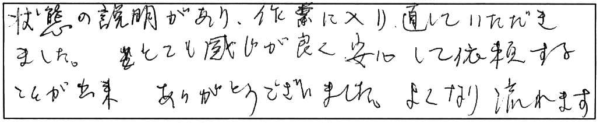 状態の説明があり、作業に入り、直していただき
ました。とても感じが良く安心して依頼する
ことが出来 ありがとうございました。よくなり流れます